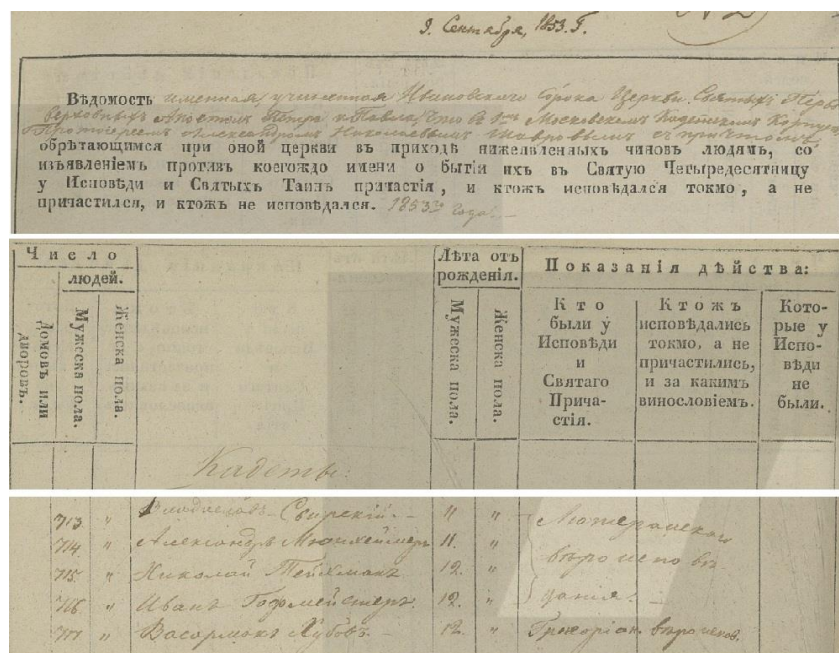 9. Сентября, 1853. Г.
Вѣдомость именная, учиненная Ивановскаго Сорока Церкви Святыхъ Перво
верховныхъ Апостолъ Петра и Павла, что въ Московскомъ Кадетскомъ Корпусѣ
Протоіереемъ Александромъ Николаевымъ съ причтомъ,
обрѣтающимся при оной церкви въ приходѣ нижеявленныхъ чиновъ людямъ, со
изъявленіемъ противъ коегождо имени о бытіи ихъ въ Святую Четыредесятницу
у Исповѣди и Святыхъ Таинъ причастія, и ктожъ исповѣдался токмо, а не
причастился, и ктожъ не исповѣдался. 1853го года.
Число
людей.
Домовъ или дворовъ.
Мужеска пола.
Женска пола.
Лѣта отъ рожденія.
Мужеска пола.
Женска пола.
Показанія дѣйства:
Кто
были у
Исповѣди
и
Святаго
Прича-
стія.
Ктожъ
исповѣдались
токмо, а не
причастились,
и за какимъ
винословіемъ.
Кото-
рые у
Испо-
вѣди
не
были.
Кадеты:
713 " Свирскій 11 " Лютеранскаго
714 " Александръ 11. " вѣроисповѣ-
715 " Николай Тейхманъ 12. " данія.
716 " Иванъ Гофмейстеръ. 12. "
717 " 12. " Григоріан. вѣроисповѣд.